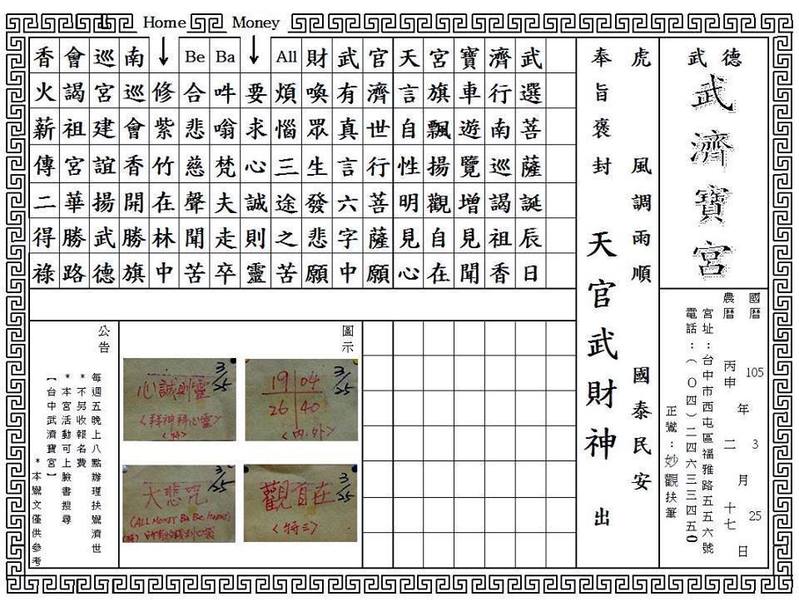 武德
武濟寶宮
國曆 105 年 3 月 25 日
農曆 丙申 二 十七
宮址:台中市西屯區福雅路五五六號
電話:(0四)二四六三三四五0
正鸞:妙觀扶筆
虎 風調雨順 國泰民安
奉旨褒封 天官武財神 出
武選菩薩誕辰日
濟行南巡謁祖香
寶車遊覽增見聞
宮旗飄揚觀自在
天言自性明見心
官濟世行菩薩願
武有真言六字中
財喚眾生發悲願
All煩惱三途之苦
Money
要求心誠則靈
Ba吽嗡梵夫走卒
Be合悲慈聲聞苦
Home
修紫竹在林中
南巡會香開勝旗
巡宮建誼揚武德
會謁祖宮華勝路
香火薪傳二得祿
圖示
3/25
19 04
26 40
<內.外>
3/25
心誠則靈
<拜神拜心靈>
3/25
觀自在
<特三>
3/25
大悲咒
(ALL MONEY Ba Be home)
公告
每週五晚上八點辦理扶鸞濟世
*不另收報名費
*本宮活動可上臉書搜尋
【台中武濟寶宮】
*本鸞文僅供參考